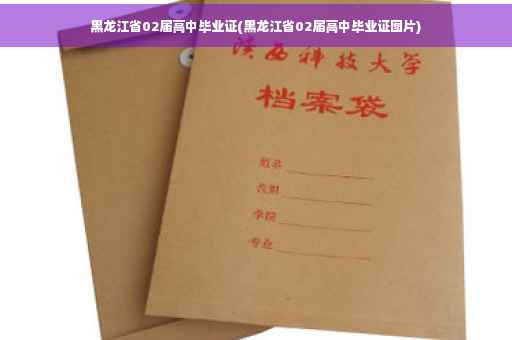 黑龙江省02届高中毕业证(黑龙江省02届高中毕业证图片)
陕西科技大学
档案袋
姓名
性别
学院
专业